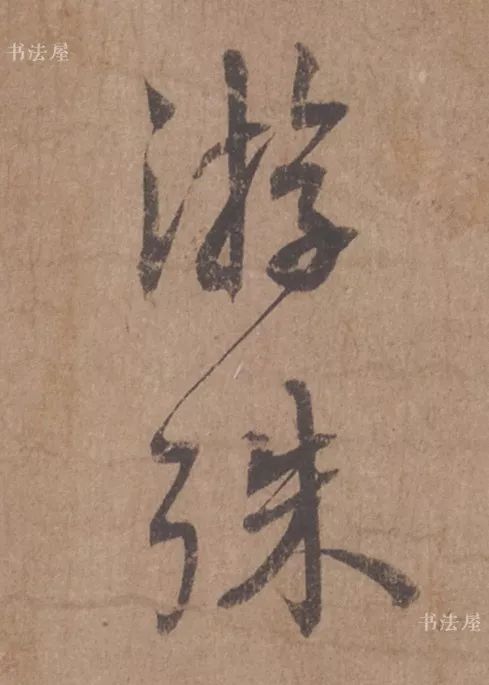 书法屋
游
殊
书法屋